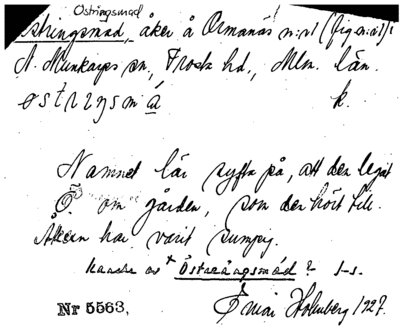 Östringsmad
Östringsmad, åker å Ormanäs n:r1 (fig n:o1)
N. Munkarps sn, Frosta hd., Mlm. län.
østrıŋsmá k.
Namnet lär syfta på, att den legat
Ö. om gården, som den hört till.
Åkern har varit sumpig.
kanske av * östreängsmad?
Nr 5563. Holmberg 1927.